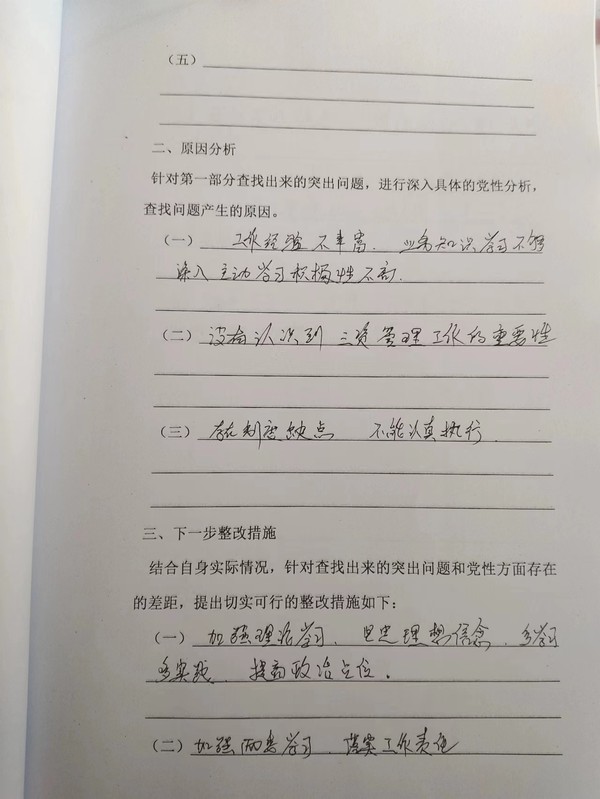 （五）
二、原因分析
针对第一部分查找出来的突出问题，进行深入具体的党性分析，
查找问题产生的原因。
（一） 工作经验不丰富、业务知识学习不够
深入 主动学习积极性不高.
（二） 没有认识到 三资管理工作的重要性
（三） 存在制度缺点 不能认真执行.
三、下一步整改措施
结合自身实际情况，针对查找出来的突出问题和党性方面存在
的差距，提出切实可行的整改措施如下：
（一） 加强理论学习、理想信念、多学习
提高政治占位。
（二） 加强学习、落实工作责任